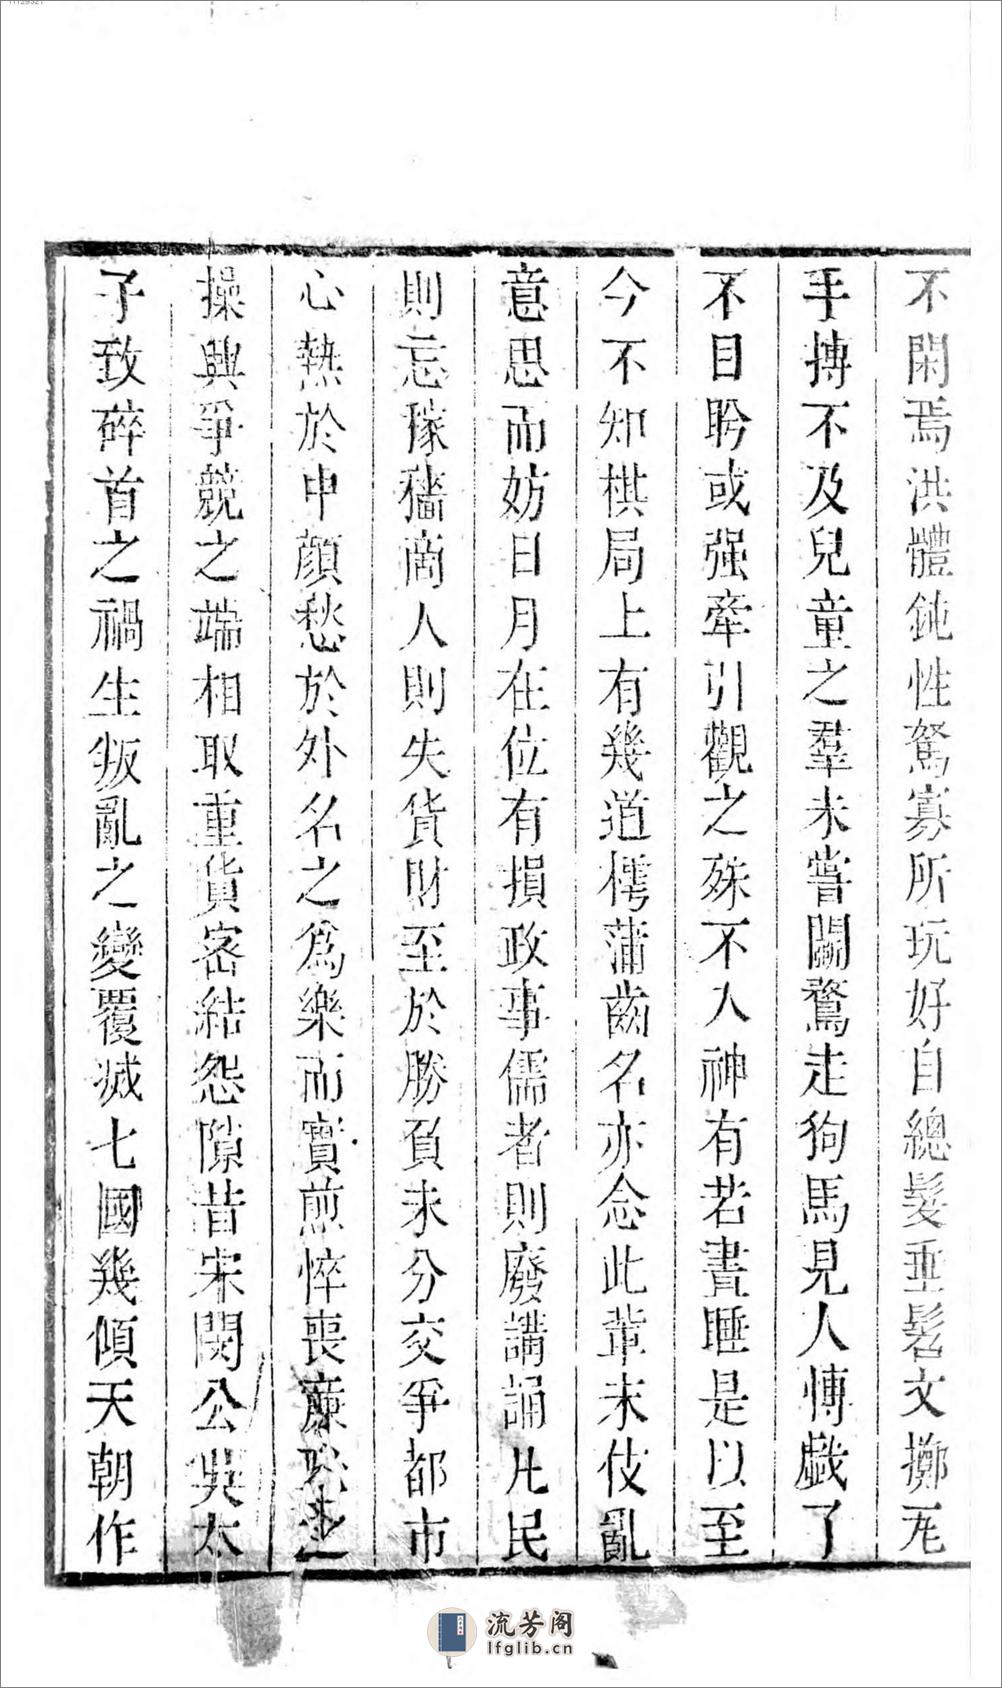 不閑焉洪體鈍性駑寡所玩好自總髮垂髫又擲瓦
手搏不及兒童之羣未嘗鬬鷔走狗馬見人愽戲了
不目眄或强牽引觀之殊不入神有若晝睡是以至
今不知棋局上有幾道樗蒲齒名亦念此輩末伎亂
意思而妨日月在位有損政事儒者則廢講誦凡民
則忘稼穡商人則失貨財至於勝負未分交爭都市
心熱於中顔愁於外名之爲樂而實煎悴喪廉恥之
操興爭競之端相取重貨密結怨隙昔宋閔公吳太
子致碎首之禍生叛亂之變覆滅七國幾傾天朝作
流芳阁
lfglib.cn